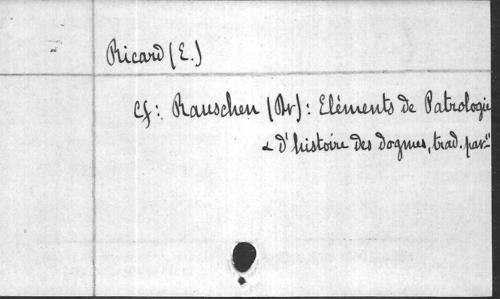 Ricard (E.)
Cf: Rauschen (Dr): Eléments de Patrologie
& d'histoire des dogmes, trad. par..